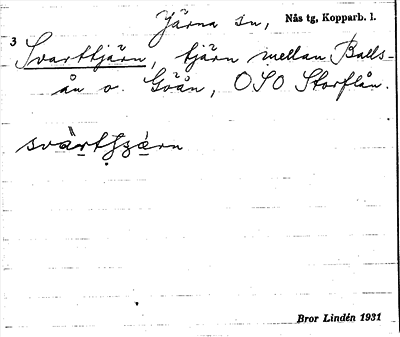 Järna sn, Nås tg, Kopparb. l.
3
Svarttjärn, tjärn mellan Balls-
ån o. Göån, OSO Storflån.
Bror Lindén 1931